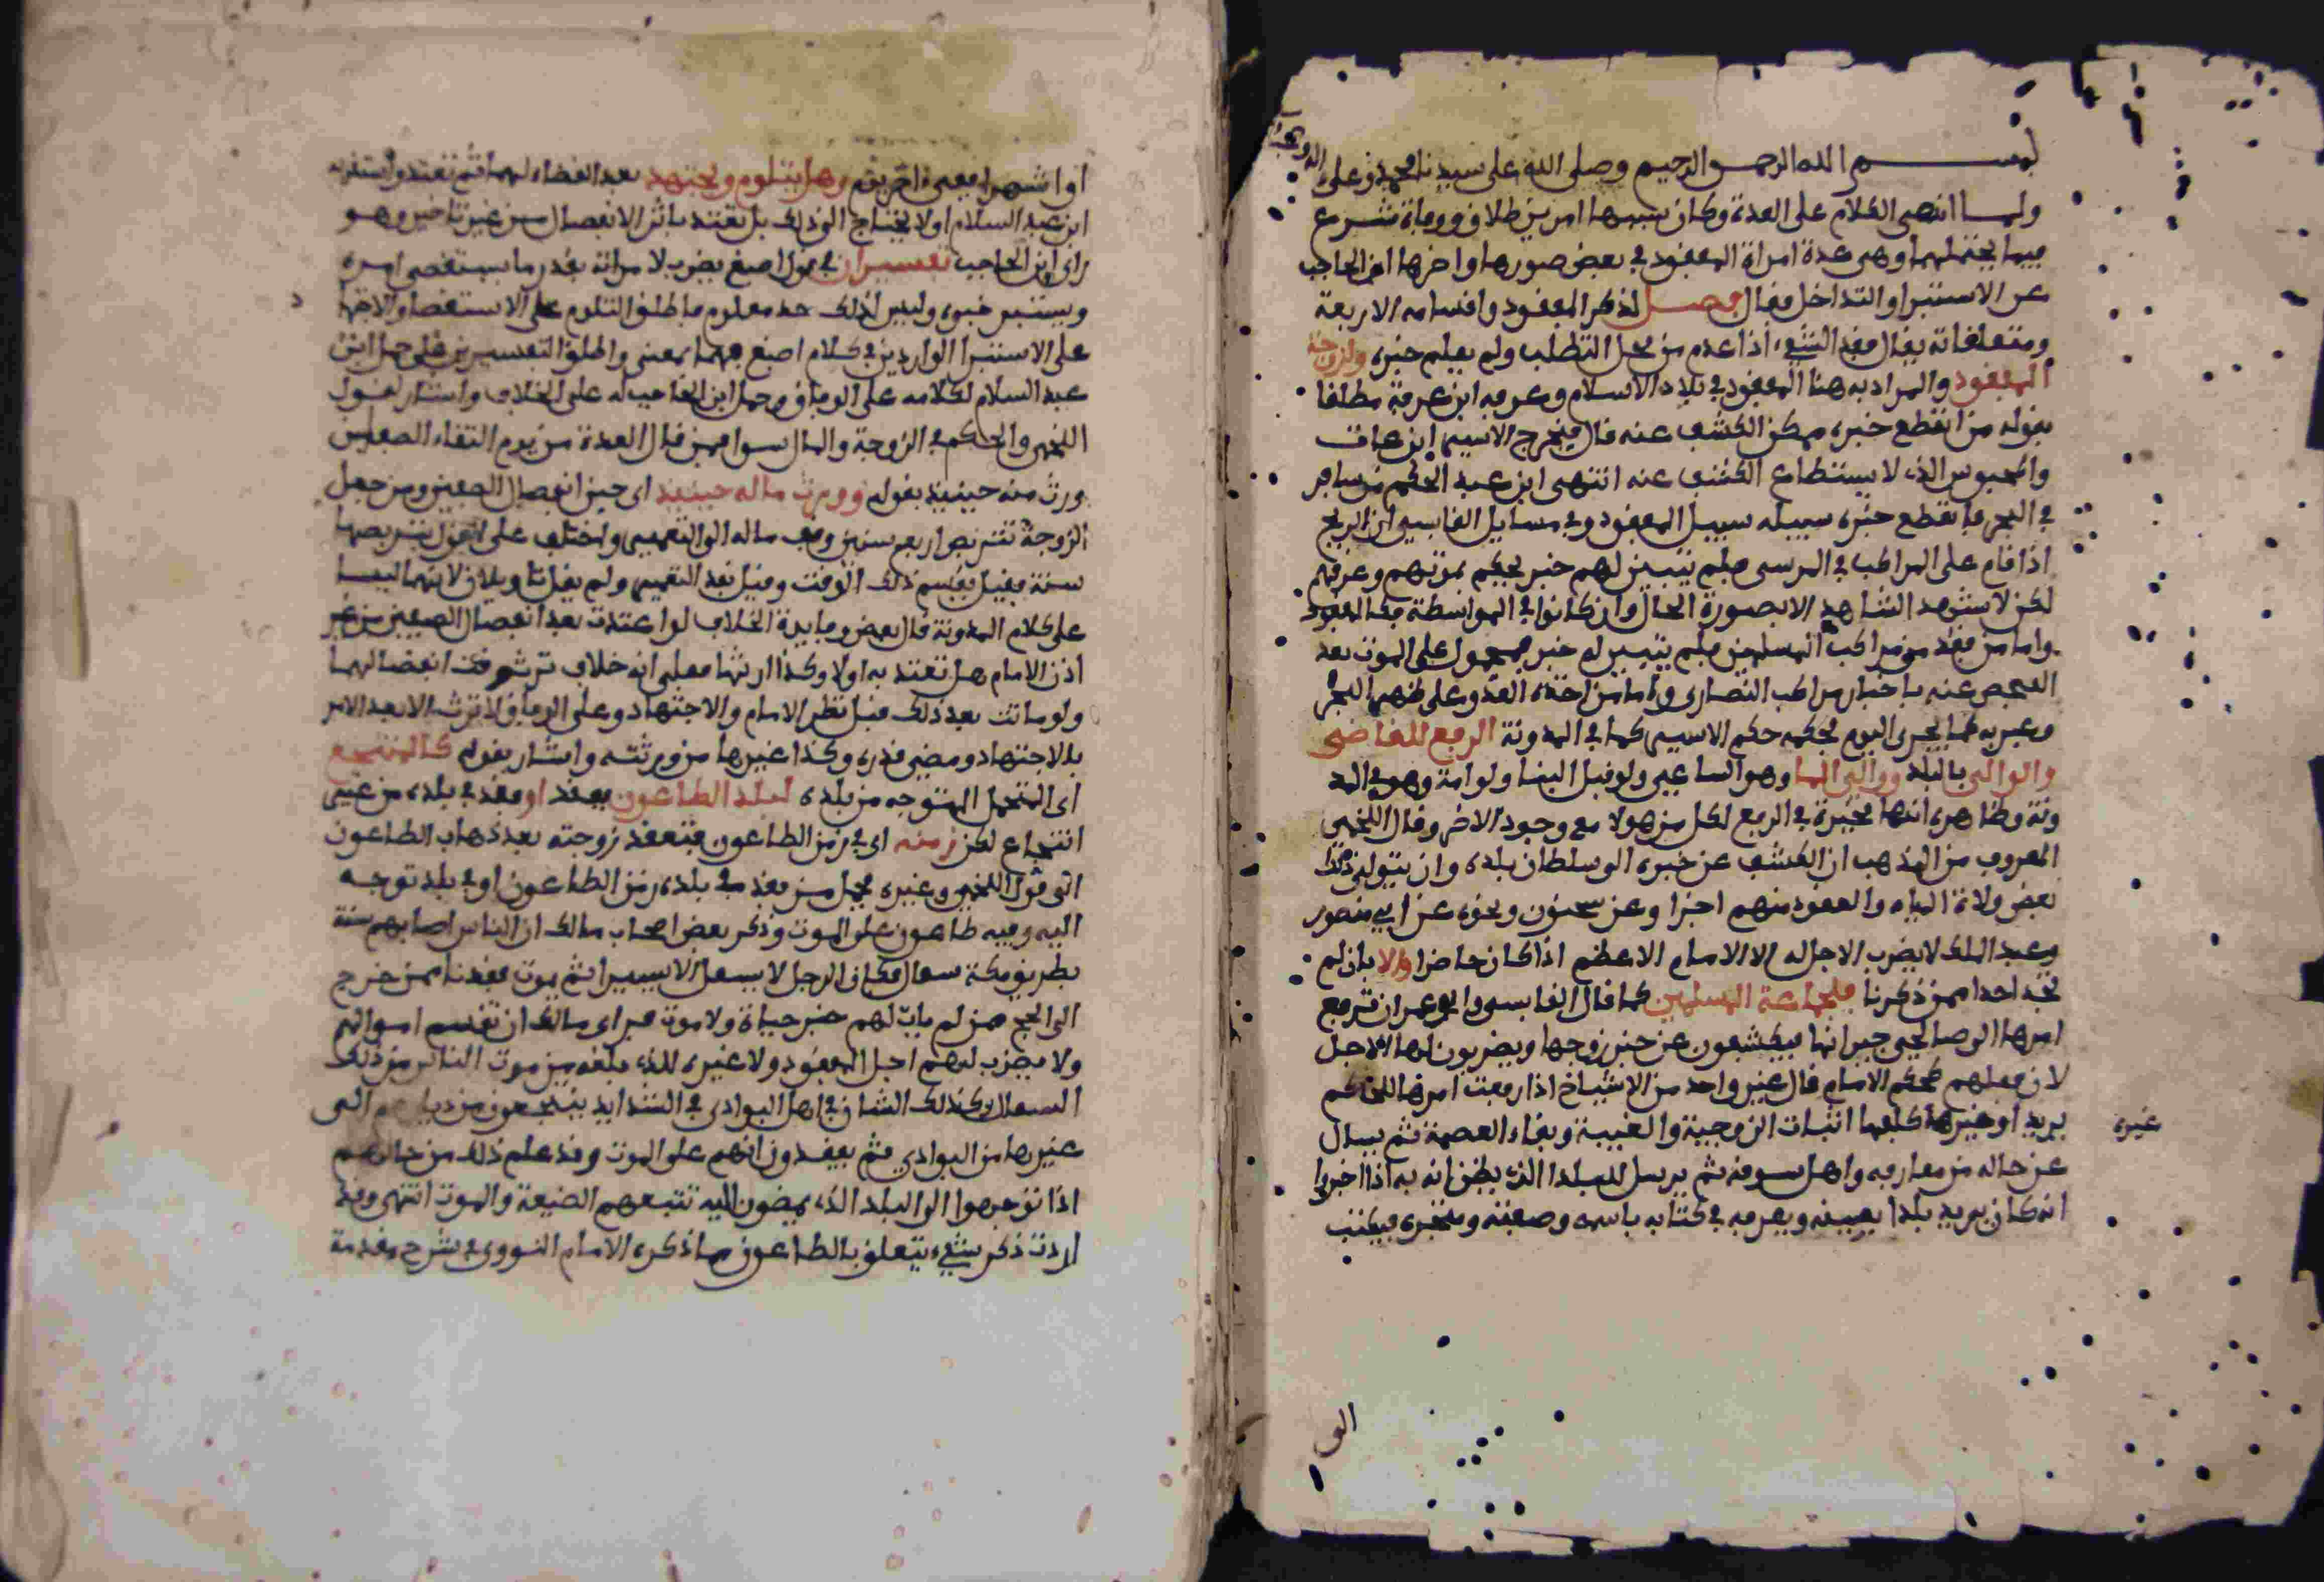 بسم الله الرحمن الرحيم وصلى الله على سيدنا محمد وعلى اله وصحبه
ولما انتهى الكلام على العدة وكان سببها امرين طلاق ووفاة شرع
فيما يحتملهما وهي عدة امراة المفقود في بعض صورها واخرها ابن الحاجب
عن الاستبرا والتداخل فقال فصل لذكر المفقود واقسامه الاربعة
ومتعلقاته يقال فقد الشيء اذا عدم من محل التطلب ولم يعلم خبره ولزوجة
المفقود والمراد به هنا المفقود في بلاد الاسلام وعرفه ابن عرفة مطلقا
بقوله من انقطع خبره ممكن الكشف عنه قال فيخرج الاسير ابن عات
والمحبوس الذي لا يستطاع الكشف عنه انتهى ابن عبد الحكم من سافر
في البحر فانقطع خبره سبيله سبيل المفقود وفي مسايل القابسي ان الريح
اذا قام على المراكب في المرسى فلم يتبين لهم خبر يحكم بموتهم وغرقهم
لكن لا يشهد الشاهد الا بصورة الحال وان كانوا في المواسطة فكالمفقود
واما من فقد من مراكب المسلمين فلم يتبين له خبر فمحمول على الموت بعد
الفحص عنه باخبار مراكب النصارى واما من اخذه العدو وعلى ظهر البحر
وعبر به كما يجرى اليوم فحكمه حكم الاسير كما في المدونة الرفع للقاضي
والوالي بالبلد ووالي الما وهو الساعي ولو قبل البنا ولو امة وهو في المد
ونة وظاهره انها مخيرة في الرفع لكل من هولا مع وجود الاخر وقال اللخمي
المعروف من المذهب ان الكشف عن خبره الى سلطان بلده وان يتولى ذلك
بعض ولاة المياه والمفقود منهم اجزا وعن سحنون ونحوه عن ابي مصور
وعبد الملك لا يضرب الاجل له الا الامام الاعظم اذا كان حاضرا والا بان لم
تجد احدا ممن ذكرنا فلجماعة المسلمين كما قال القابسي وابو عمران ترفع
امرها الى صالحي جيرانها فيكشفون عن خبر زوجها ويضربون لها الاجل
لان فعلهم كحكم الامام قال غير واحد من الاشياخ اذا رفعت امرها للحاكم
يريد او غيره كلفها اثبات الزوجية والغيبة وبقاء العصمة ثم يسال
غيره
عن حاله من معارفه واهل سوقه ثم يرسل للبلد الذي يظن انه به اذا اخبروا
انه كان يريد بلدا بعينه ويعرفه في كتابه باسمه وصفته ومتجره فيكتب
الى
او اشهر ففي اخريق وهل يتلوم ويجتهد بعد القضاء لهما ثم تعتد واستقربه
ابن عبد السلام او لا يحتاج الى ذلك بل تعتد باثر الانفصال من غير تاخير وهو
راى ابن الحاجب تفسيران في قول اصبغ يضرب لامراته بقدر ما يستقصى امره
ويستبر خبره وليس لذلك حد معلوم فاطلق التلوم على الاستقصا والاجتها
د
على الاستبرا الواردين في كلام اصبغ فهما بمعنى واطلق التفسيرين على حمل ابن
عبد السلام لكلامه على الوفاق وحمل ابن الحاجب له على الخلاف واشار لقول
اللخمي والحكم في الزوجة والمال سوا فمن قال العدة من يوم التقاء الصفين
ورث منه حينيذ بقوله وورث ماله حينيذ اى حين انفصال الصفين ومن جعل
الزوجة تتربص اربع سنين وقف ماله الى التعمير واختلف على القول بتربصها
سنة فقيل يقسم ذلك الوقت وقيل بعد التعمير ولم يقل تاويلان لانهما ليسا
على كلام المدونة قال بعض وفايدة الخلاف لو اعتدت بعد انفصال الصفين من غير
اذن الامام هل تعتد به او لا وكذا ارثها فعلى انه خلاف ترث وقت انفصالهما
ولو ماتت بعد ذلك قبل نظر الامام والاجتهاد وعلى الوفاق لا ترث الا بعد الامر
بالاجتهاد ومضي قدره وكذا غيرها من ورثته واشار بقوله كالمنتجع
اى المتحمل المتوجه من بلده لبلد الطاعون ففقد او فقد في بلده من غير
انتجاع لكن زمنه اى في زمن الطاعون فتعتد زوجته بعد ذهاب الطاعون
الى قول اللخمي وغيره محمل من فقد في بلده زمن الطاعون او في بلد توجه
اليه وفيه طاعون على الموت وذكر بعض اصحاب مالك ان الناس اصابهم سنة
بطريق مكة سعال فكان الرجل لا يسعل الا يسيرا ثم يموت ففقد ناس ممن خرج
الى الحج فمن لم يات لهم خبر حياة ولا موت فراى مالك ان تقسم اموالهم
ولا يضرب لهم اجل المفقود ولا غيره للذي بلغه من موت الناس من ذلك
السعال وكذلك الشان في اهل البوادي في الشدايد ينتجعون من ديارهم الى
غيرها من البوادي فثم يفقدون انهم على الموت وقد علم ذلك من حالهم
اذا توجهوا الى البلد الذي يمضون اليه تتبعهم الضيعة والموت انتهى وقد
اردت ذكر شيء يتعلق بالطاعون مما ذكره الامام النووي في شرح مقدمة